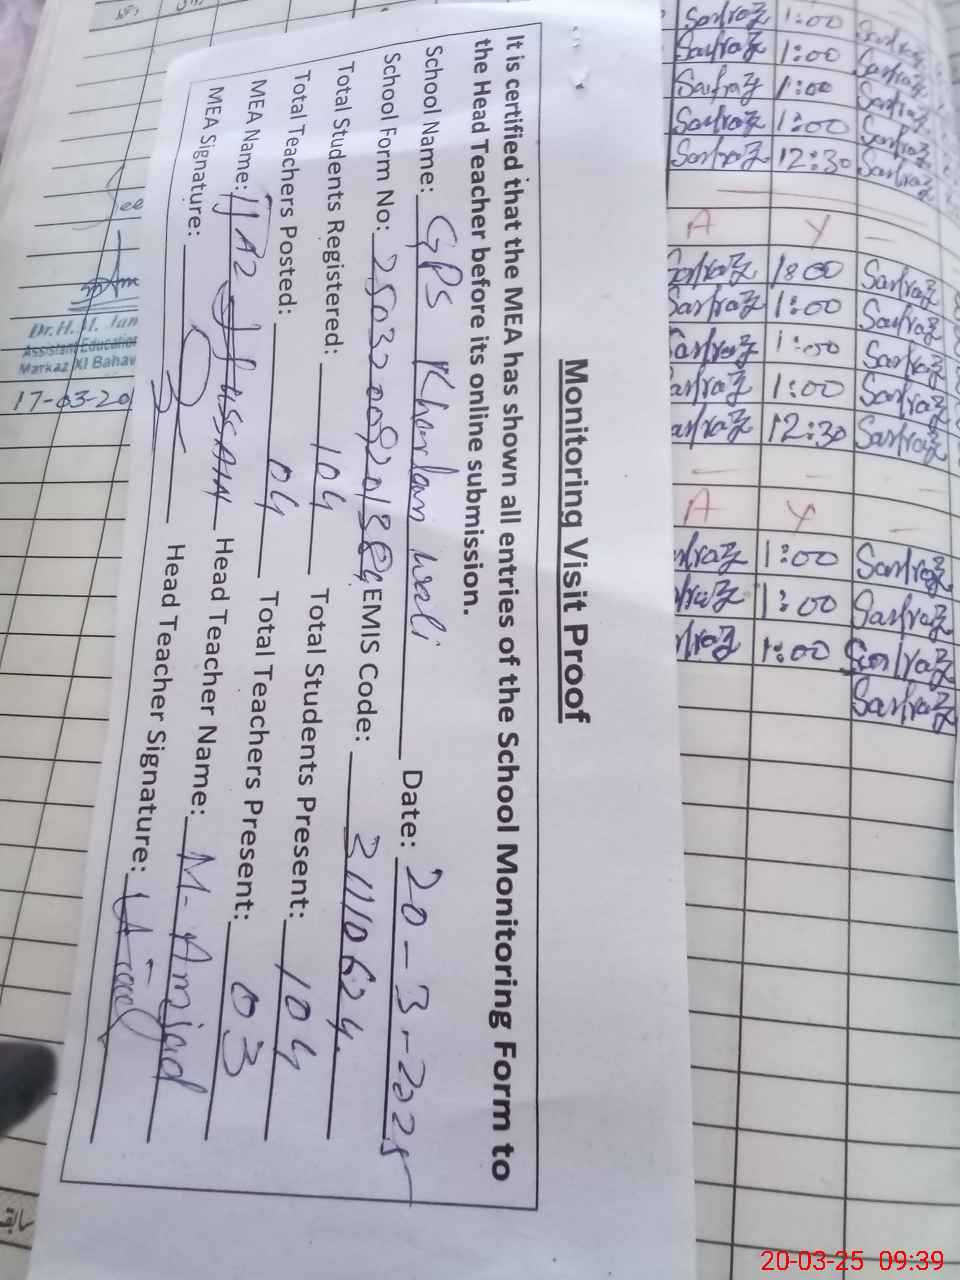 Monitoring Visit Proof
It is certified that the MEA has shown all entries of the School Monitoring Form to
the Head Teacher before its online submission.
School Name: GPS Khandan wali Date: 20-3-2025
School Form No: EMIS Code: 31110624
Total Students Registered: 104 Total Students Present: 104
Total Teachers Posted: 04 Total Teachers Present: 03
MEA Name: IJAZ HUSSAIN Head Teacher Name: M. Amjad
MEA Signature: Head Teacher Signature:
Sarfraz 1:00 Sarfraz
Sarfraz 1:00 Sarfraz
Sarfraz 1:00 Sarfraz
Sarfraz 1:00 Sarfraz
Sarfraz 12:30 Sarfraz
A Y –
Sarfraz 1:00 Sarfraz
Sarfraz 1:00 Sarfraz
Sarfraz 1:00 Sarfraz
arfraz 1:00 Sarfraz
arfraz 12:30 Sarfraz
A Y –
rfraz 1:00 Sarfraz
rfraz 1:00 Sarfraz
fraz 1:00 Sarfraz
Sarfraz
Dr. H. M. Jan
Assistant Education
Markaz XI Bahaw
17-03-20
20-03-25 09:39